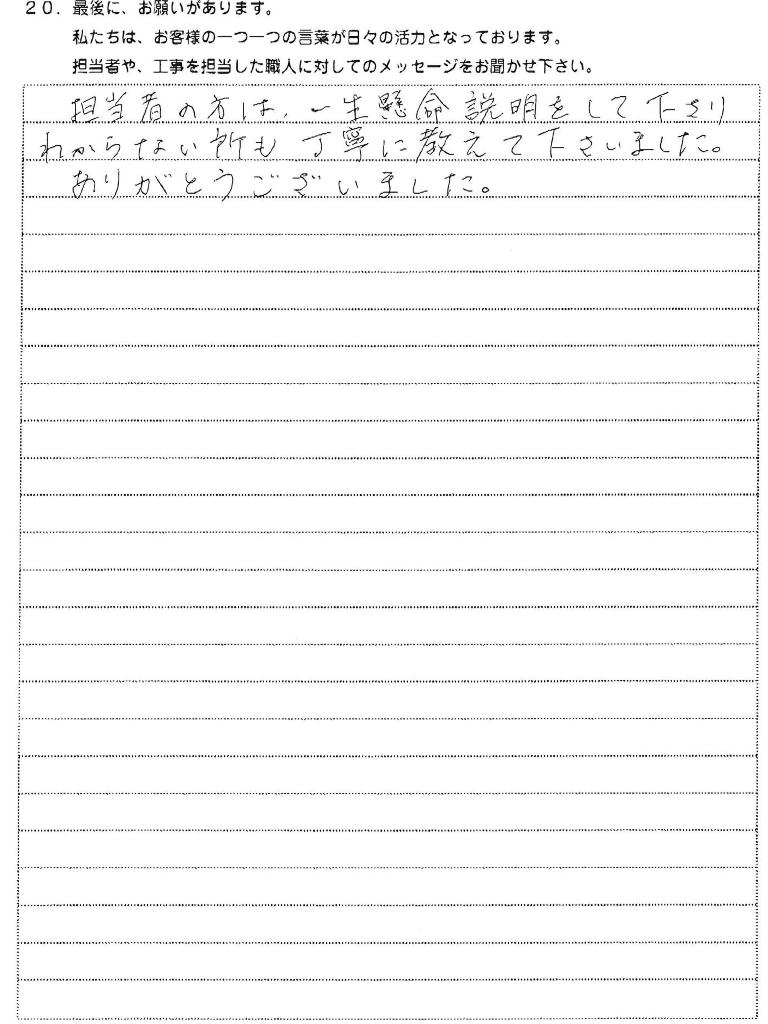 20. 最後に、お願いがあります。
私たちは、お客様の一つ一つの言葉が日々の活力となっております。
担当者や、工事を担当した職人に対してのメッセージをお聞かせ下さい。
担当者の方は、一生懸命説明をして下さり
わからない所も丁寧に教えて下さいました。
ありがとうございました。